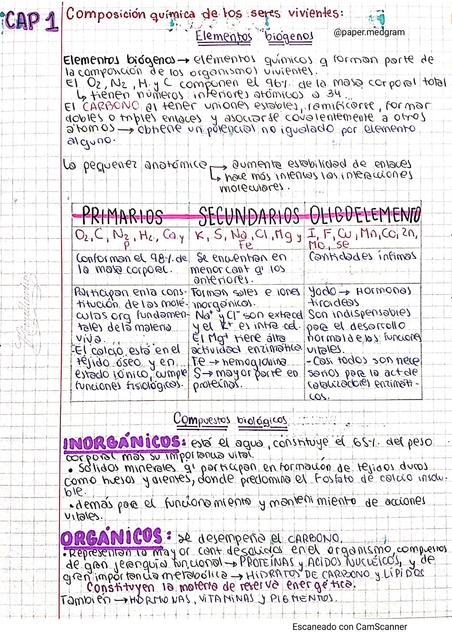 CAP 1
Composición química de los seres vivientes:
Elementos biógenos
@paper.medgram
Elementos biógenos → elementos químicos q forman parte de
la composición de los organismos vivientes.
El O2, N2, H y C componen el 96% de la masa corporal total
↳ tienen números inferiores atómicos a 34.
El CARBONO al tener uniones estables, ramificarse, formar
dobles o triples enlaces y asociarse covalentemente a otros
átomos → obtiene un potencial no igualado por elemento
alguno.
La pequeñez anatómica → aumenta estabilidad de enlaces
↳ hace más intensas las interacciones
moleculares.
PRIMARIOS
O2, C, N2, H2, Ca y
P
Conforman el 98% de
la masa corporal.
Participan en la cons-
titución de las molé-
culas org fundamen-
tales de la materia
viva.
-El calcio está en el
tejido óseo y en
estado iónico, cumple
funciones fisiológicas.
SECUNDARIOS
K, S, Na, Cl, Mg y
Fe
Se encuentran en
menor cant q' los
anteriores.
Forman sales e iones
inorgánicos.
Na y Cl son extracel
y el K+ es intra cel.
El Mg+ tiene alta
actividad enzimática
Fe → hemoglobina
S → mayor parte en
proteínas.
OLIGOELEMENTO
I, F, Cu, Mn, Co, Zn,
Mo, Se
Cantidades ínfimas
Yodo → Hormonas
tiroideas
Son indispensables
para el desarrollo
normal de las funciones
vitales.
-Casi todos son nece
sarios para la act de
catalizadores enzimáti-
cos.
Compuestos biológicos
INORGÁNICOS: está el agua, constituye el 65% del peso
corporal más su importancia vital.
• Sólidos minerales q' participan en formación de tejidos duros
como huesos y dientes, donde predomina el Fosfato de calcio insolu-
ble.
• demás para el funcionamiento y mantenimiento de acciones
vitales.
ORGÁNICOS: se desempeña el CARBONO.
• Representan la mayor cant de sólidos en el organismo, compuestos
de gran jerarquía funcional → PROTEÍNAS y ACIDOS NUCLEICOS, y de
gran importancia metabólica → HIDRATOS DE CARBONO y LÍPIDOS
Constituyen la materia de reserva energética.
También → HORMONAS, VITAMINAS y PIGMENTOS.
Escaneado con CamScanner